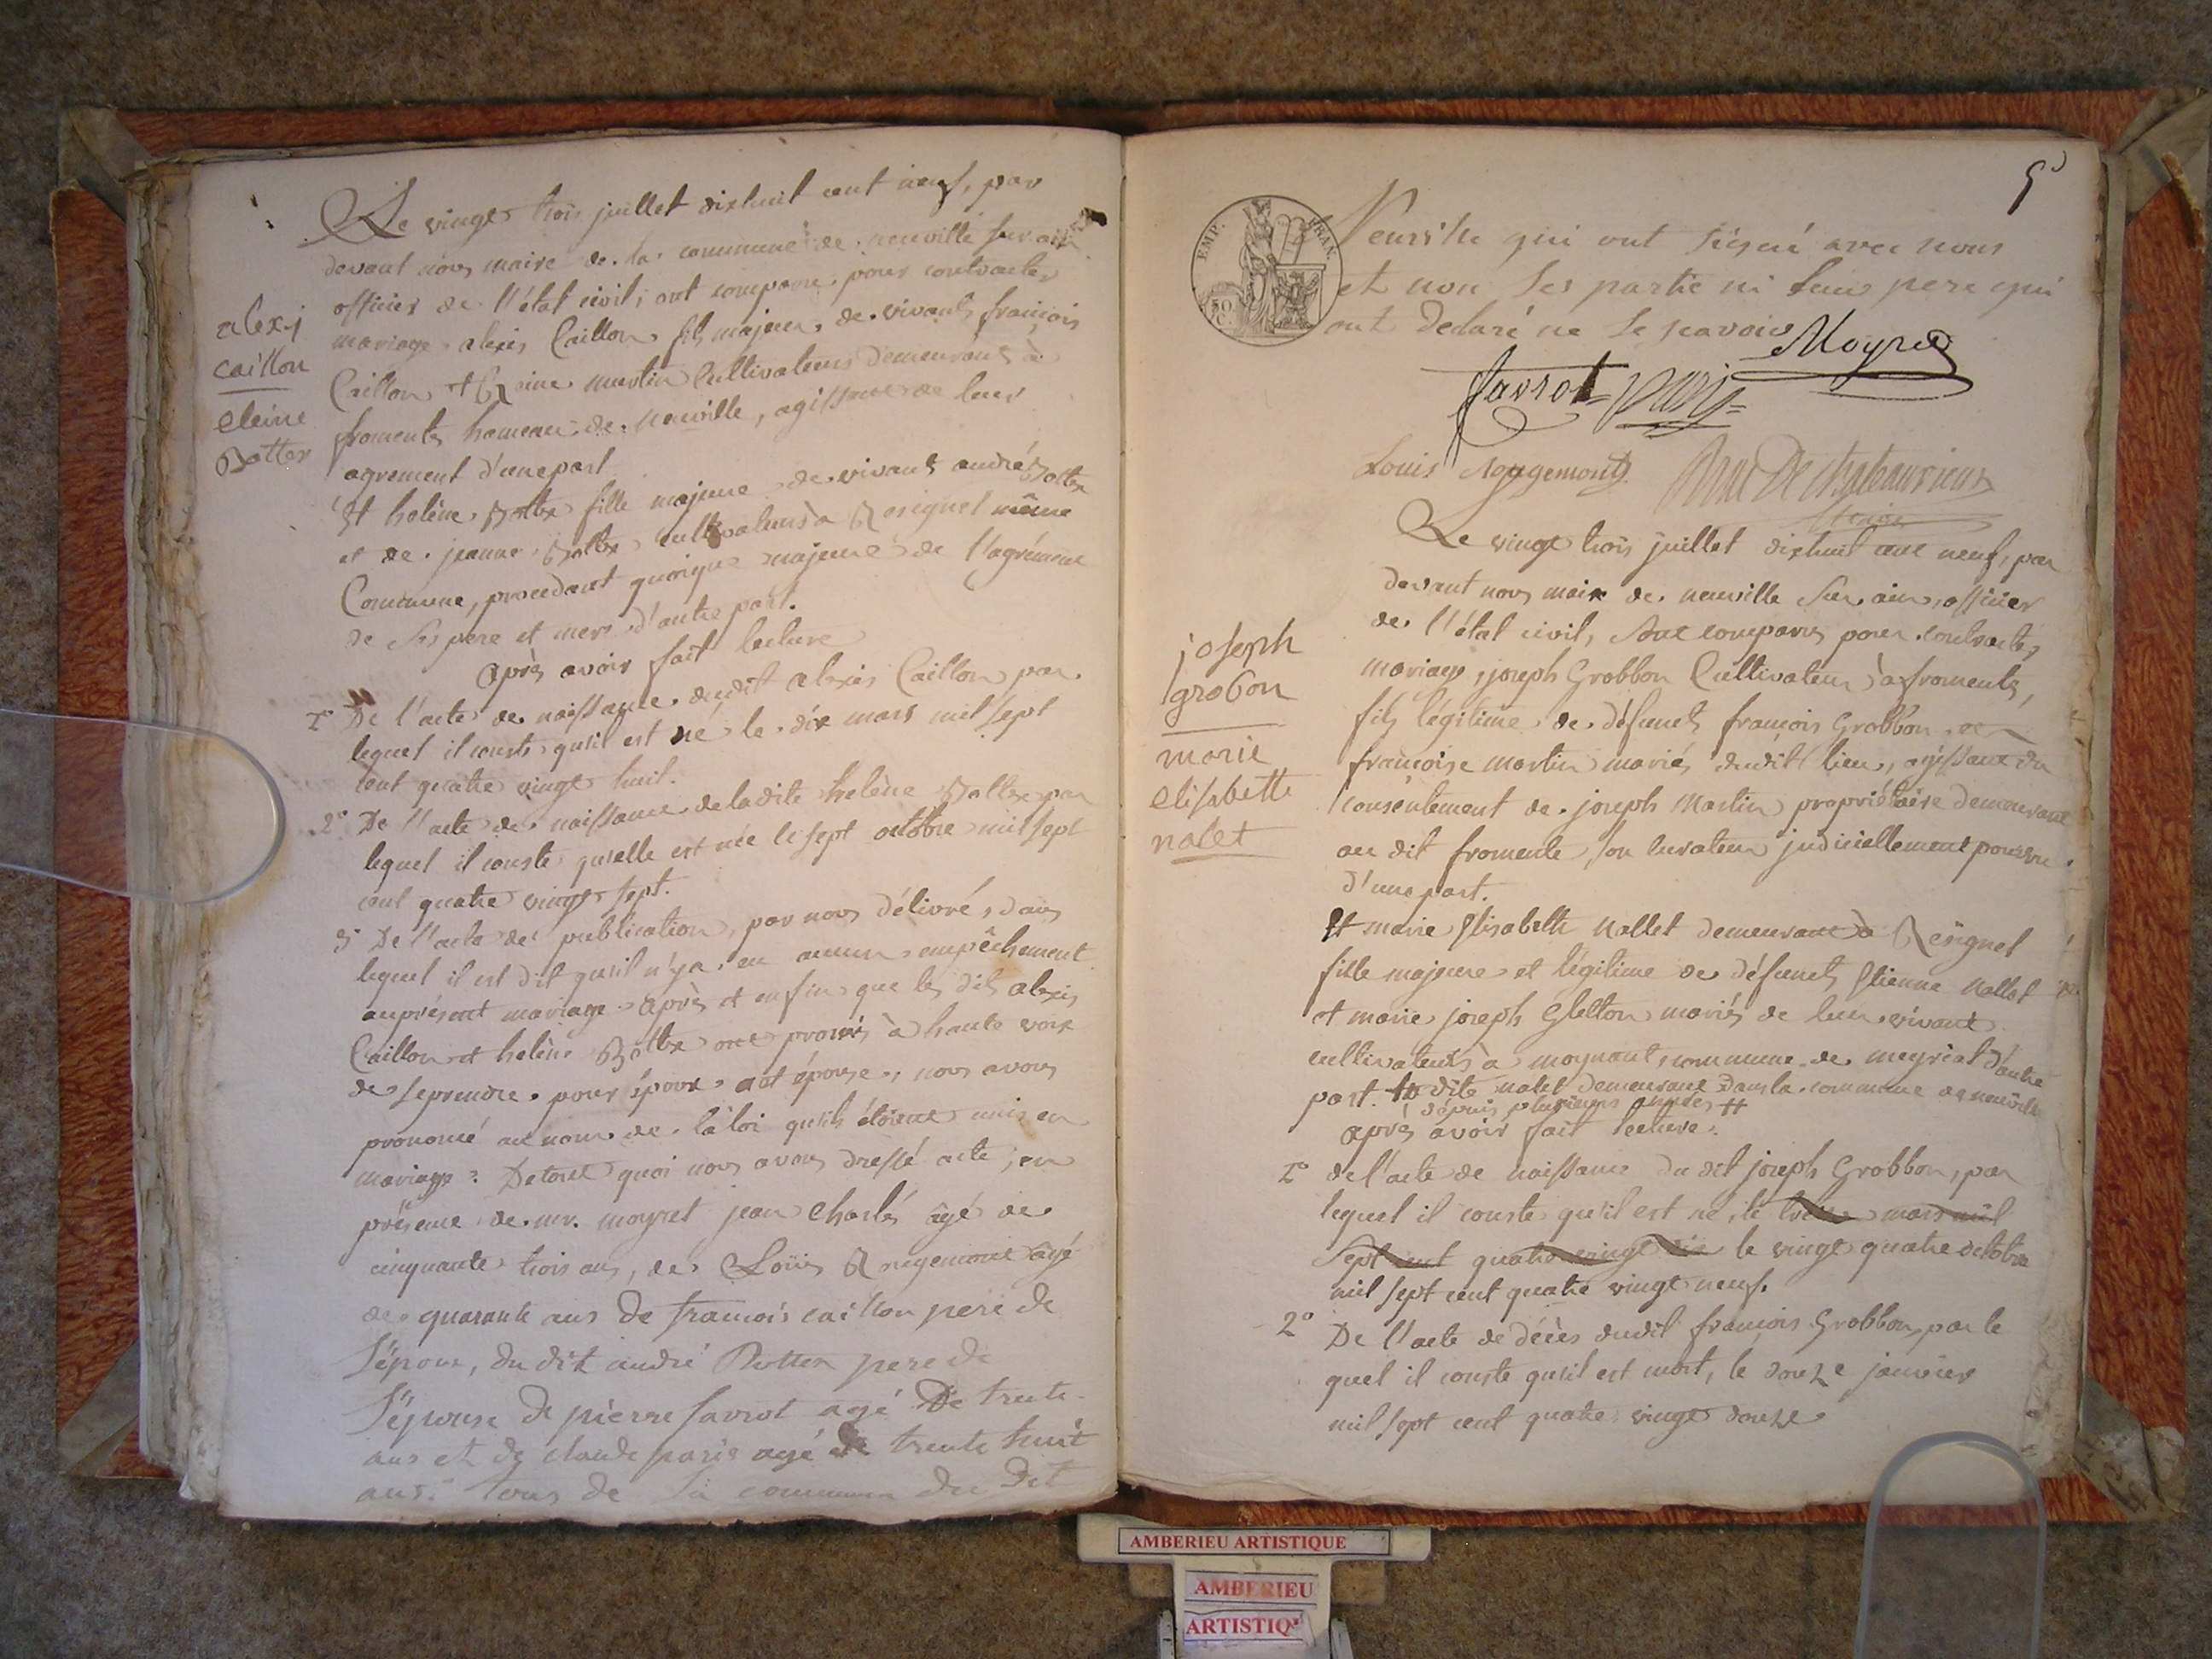 Le vingt trois juillet dixhuit cent neuf, par
devant nous maire de la commune de neuville sur ain
officier de l'état civil, ont comparu pour contracter
mariage alexis Caillon fils majeur de vivants françois
Caillon et Reine martin Cultivateurs demeurant à
fromente hameau de neuville, agissant de leur
agrement d'une part
Et helène Bottex fille majeure de vivant andré Bottex
et de jeanne Bottex cultivateurs à Resignel même
Commune, procedant quoique majeure de l'agrément
de ses pere et mere d'autre part.
après avoir fait lecture
alexj
caillon
eleine
Botter
1° De l'acte de naissance dudit alexis Caillon par
lequel il conste qu'il est né le dix mars mil sept
cent quatre vingt huit.
2° De l'acte de naissance de ladite helène Bottex par
lequel il conste qu'elle est née le sept octobre mil sept
cent quatre vingt sept.
3° De l'acte de publication, par nous délivré, dans
lequel il est dit qu'il n'ya eu aucun empêchement
auprésent mariage. après et enfin que les dits alexis
Caillon et helène Bottex ont promis à haute voix
de seprendre pour époux et épouse, nous avons
prononcé au nom de la loi qu'ils étoient unis en
mariage. Detout quoi nous avons dressé acte, en
présence de mr. moyret jean Charles âgé de
cinquante trois ans, de Loüis Rougemont âgé
de quarante ans de francois caillon pere de
l'époux, du dit andré Botter pere de
l'épouse de pierre favrot agé De trente
ans et de claude paris agé de trente huit
ans. tous de la commune du Dit
5
EMP. FRAN.
50 C.
Neuville qui ont signé avec nous
et non les partie ni leur pere qui
ont declaré ne le scavoir Moyret
favrot paris
Louis Rougemont
De Chateauvieux
maire
Le vingt trois juillet dixhuit cent neuf, par
devant nous maire de neuville sur ain, officier
de l'état civil, sont comparus pour contracter
mariage, joseph Grobbon Cultivateur à fromente,
fils légitime de défunts françois Grobbon et
françoise martin mariés dudit lieu, agissant du
consentement de joseph Martin propriétaire demeurant
au dit fromente, son curateur judiciellement pourvu
d'une part.
joseph
grobon
marie
elisabette
nalet
Et marie Elisabeth Nallet demeurant à Resignel
fille majeure et légitime de défunts Etienne Nallet
et marie joseph Gletton mariés de leur vivant
cultivateurs à moynant, commune de meyriat d'autre
part. # dite nalet demeurant dans la commune de neuville
depuis plusieurs années #
après avoir fait lecture.
1° de l'acte de naissance du dit joseph Grobbon, par
lequel il conste qu'il est né, le treize mars mil
sept cent quatre vingt dix le vingt quatre octobre
mil sept cent quatre vingt neuf.
2° De l'acte de décès dudit françois Grobbon, par le
quel il conste qu'il est mort, le douze janvier
mil sept cent quatre vingt douze
AMBERIEU ARTISTIQUE
AMBERIEU
ARTISTIQ